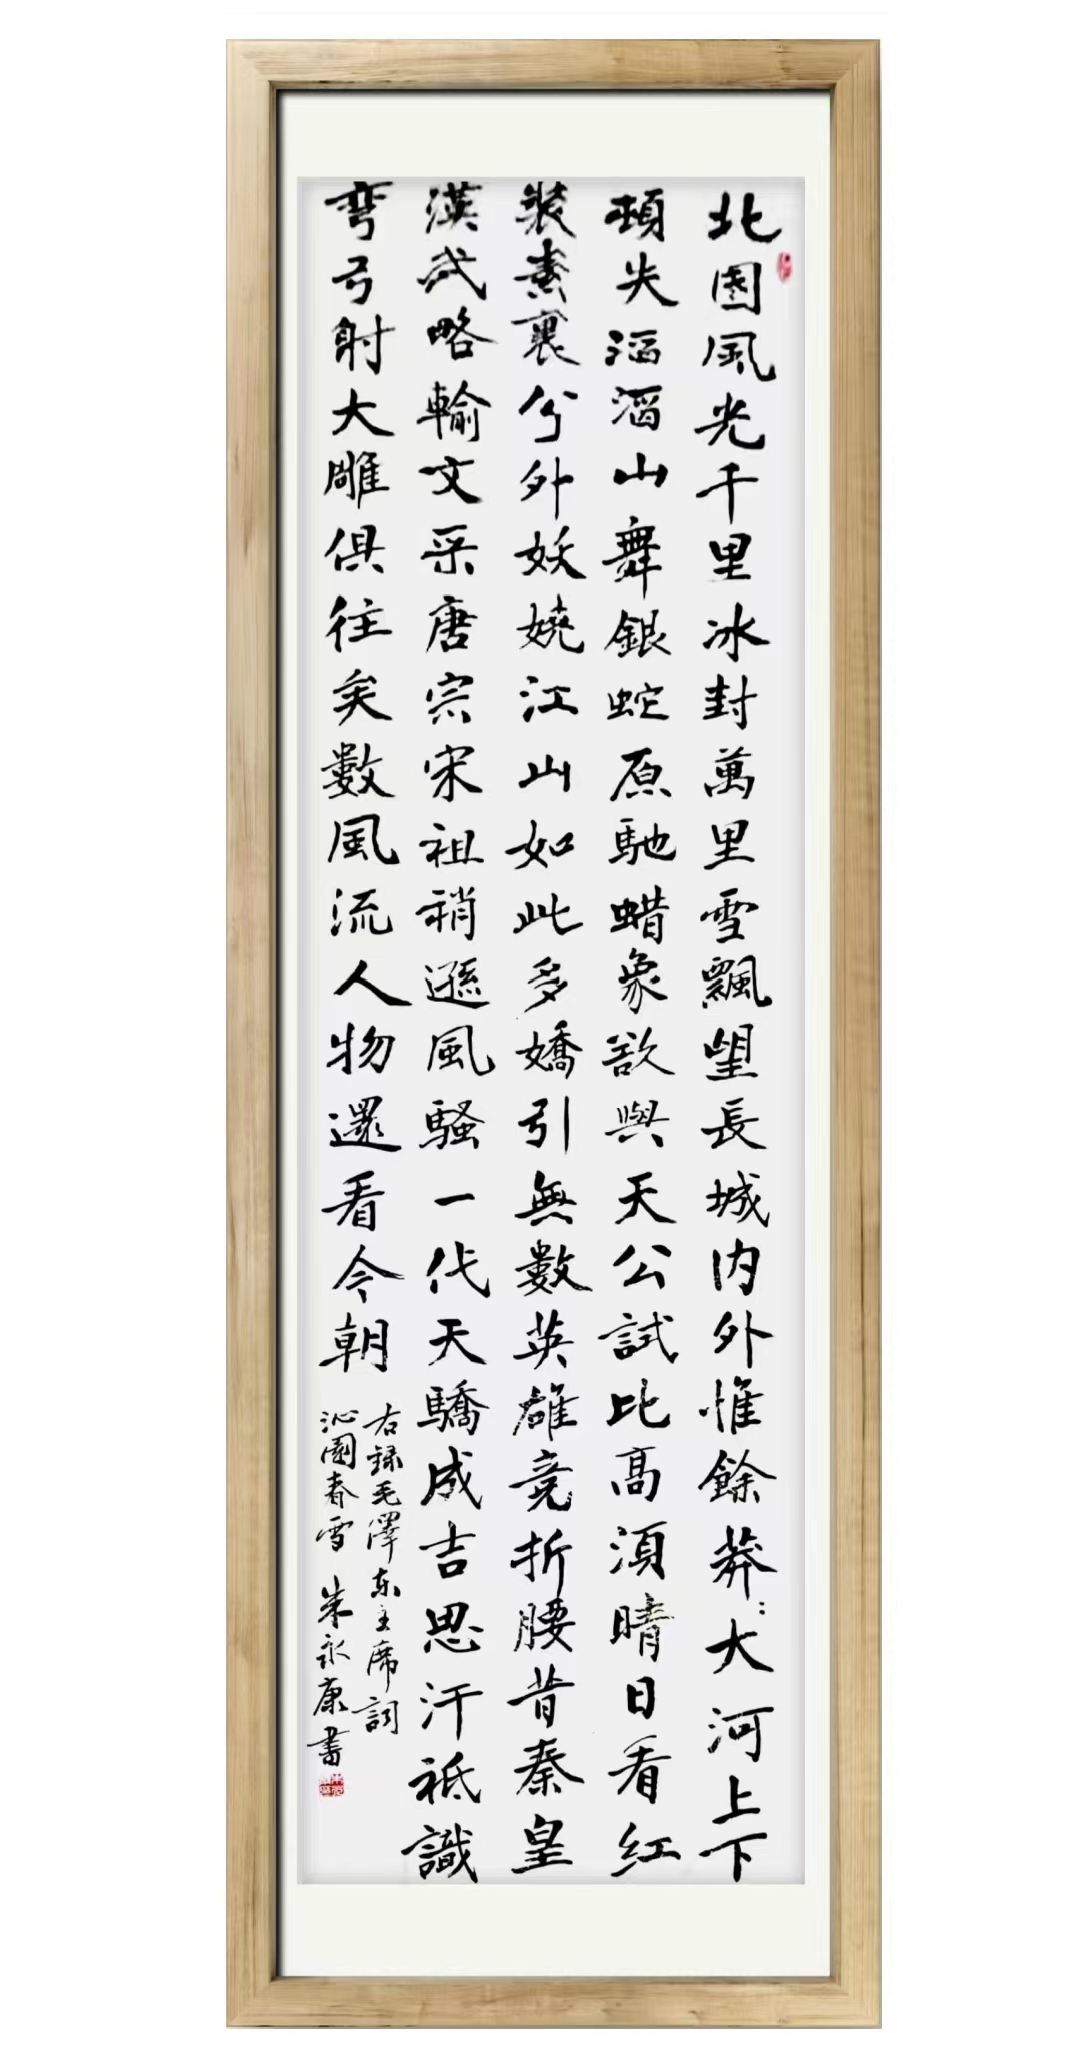 北國風光千里冰封萬里雪飄望長城内外惟餘莽〻大河上下
頓失滔滔山舞銀蛇原馳蜡象欲與天公試比高須晴日看紅
裝素裹分外妖嬈江山如此多嬌引無數英雄竞折腰昔秦皇
漢武略輸文采唐宗宋祖稍遜風騷一代天驕成吉思汗祗識
彎弓射大雕俱往矣數風流人物還看今朝
右録毛澤东主席詞
沁園春雪 朱永康書